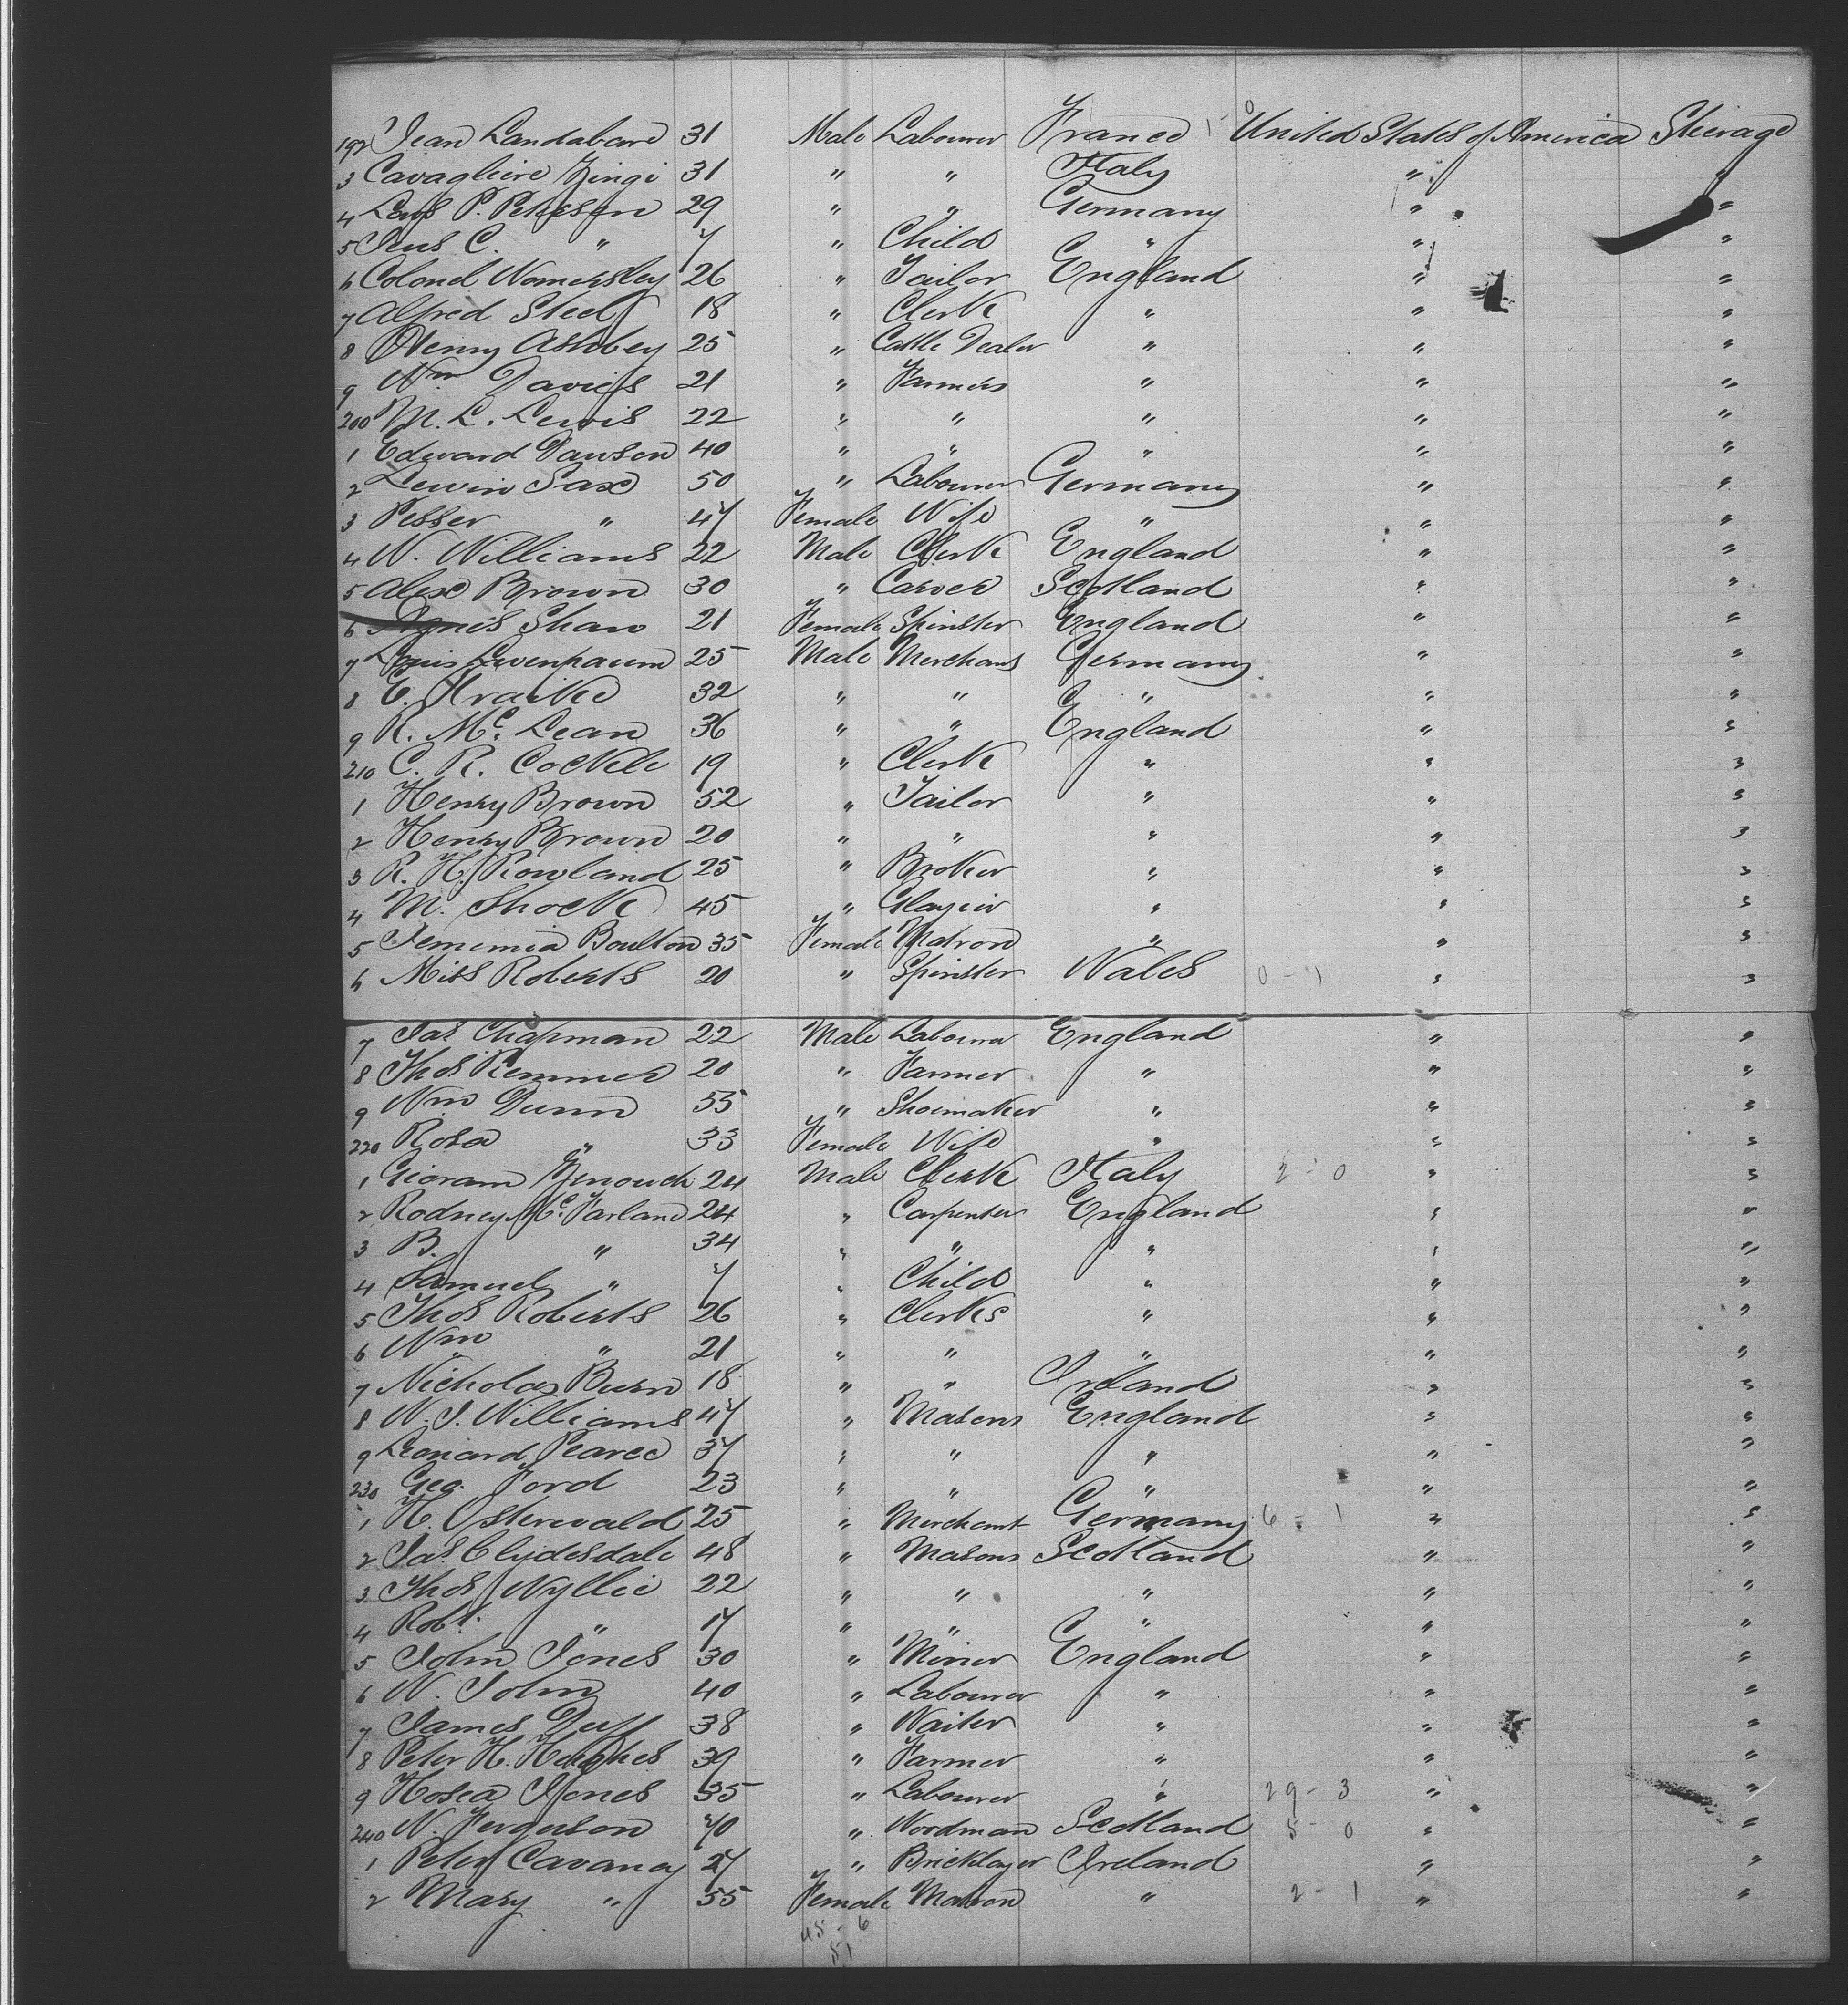 192 Jean Landabard 31 Male Labourer France United States of America Steerage
3 Cavagliere Zingi 31 " " Italy " "
4 Lars P. Petersen 29 " " Germany " "
5 Jens C. " 7 " Child " " "
6 Colonel Womersley 26 " Tailor England " "
7 Alfred Steel 18 " Clerk " " "
8 Henry Ashbey 25 " Cattle Dealer " " "
9 Wm Davies 21 " Farmers " " "
200 M. L. Lewis 22 " " " " "
1 Edward Dawson 40 " " " " "
2 Lewin Sax 50 " Labourer Germany " "
3 Pesser " 47 Female Wife " " "
4 W. Williams 22 Male Clerk England " "
5 Alex Brown 30 " Carver Scotland " "
6 Agnes Shaw 21 Female Spinster England " "
7 Louis 25 Male Merchants Germany " "
8 E. 32 " " " " "
9 R. Mc. Lean 36 " " England " "
210 C. R. Cockele 19 " Clerk " " "
1 Henry Brown 52 " Tailor " " "
2 Henry Brown 20 " " " " "
3 R. H. Rowland 25 " Broker " " "
4 M. Shock 45 " Glazier " " "
5 Jememia Boulton 35 Female Matron " " "
6 Miss Roberts 20 " Spinster Wales 0 - 1 " "
7 Jas Chapman 22 Male Labourer England " "
8 Thos Remmer 20 " Farmer " " "
9 Wm Dunn 35 " Shoemaker " " "
220 Rosa " 33 Female Wife " " "
1 Gioram 24 Male Clerk Italy 2 - 0 " "
2 Rodney Mc. Farland 24 " Carpenters England " "
3 B. " 34 " " " " "
4 Samuel " 7 " Child " " "
5 Thos Roberts 26 " Clerks " " "
6 Wm " 21 " " " " "
7 Nicholas Burn 18 " " Ireland " "
8 W. J. Williams 47 " Masons England " "
9 Leonard Pearce 37 " " " " "
230 Geo. Ford 23 " " " " "
1 H. Osterwald 25 " Merchant Germany 6 - 1 " "
2 Jas Clydesdale 48 " Masons Scotland " "
3 Thos Wyllie 22 " " " " "
4 Robt. " 17 " " " " "
5 John Jones 30 " Miner England " "
6 W. John 40 " Labourer " " "
7 James Duff 38 " Waiter " " "
8 Peter H. Hughes 39 " Farmer " " "
9 Hosea Jones 35 " Labourer " 29 - 3 " "
240 W. Ferguson 40 " Woodman Scotland 5 0 " "
1 Peter Cavanay 27 " Bricklayer Ireland " "
2 Mary " 55 Female Matron " 2 - 1 " "
45 - 6
51